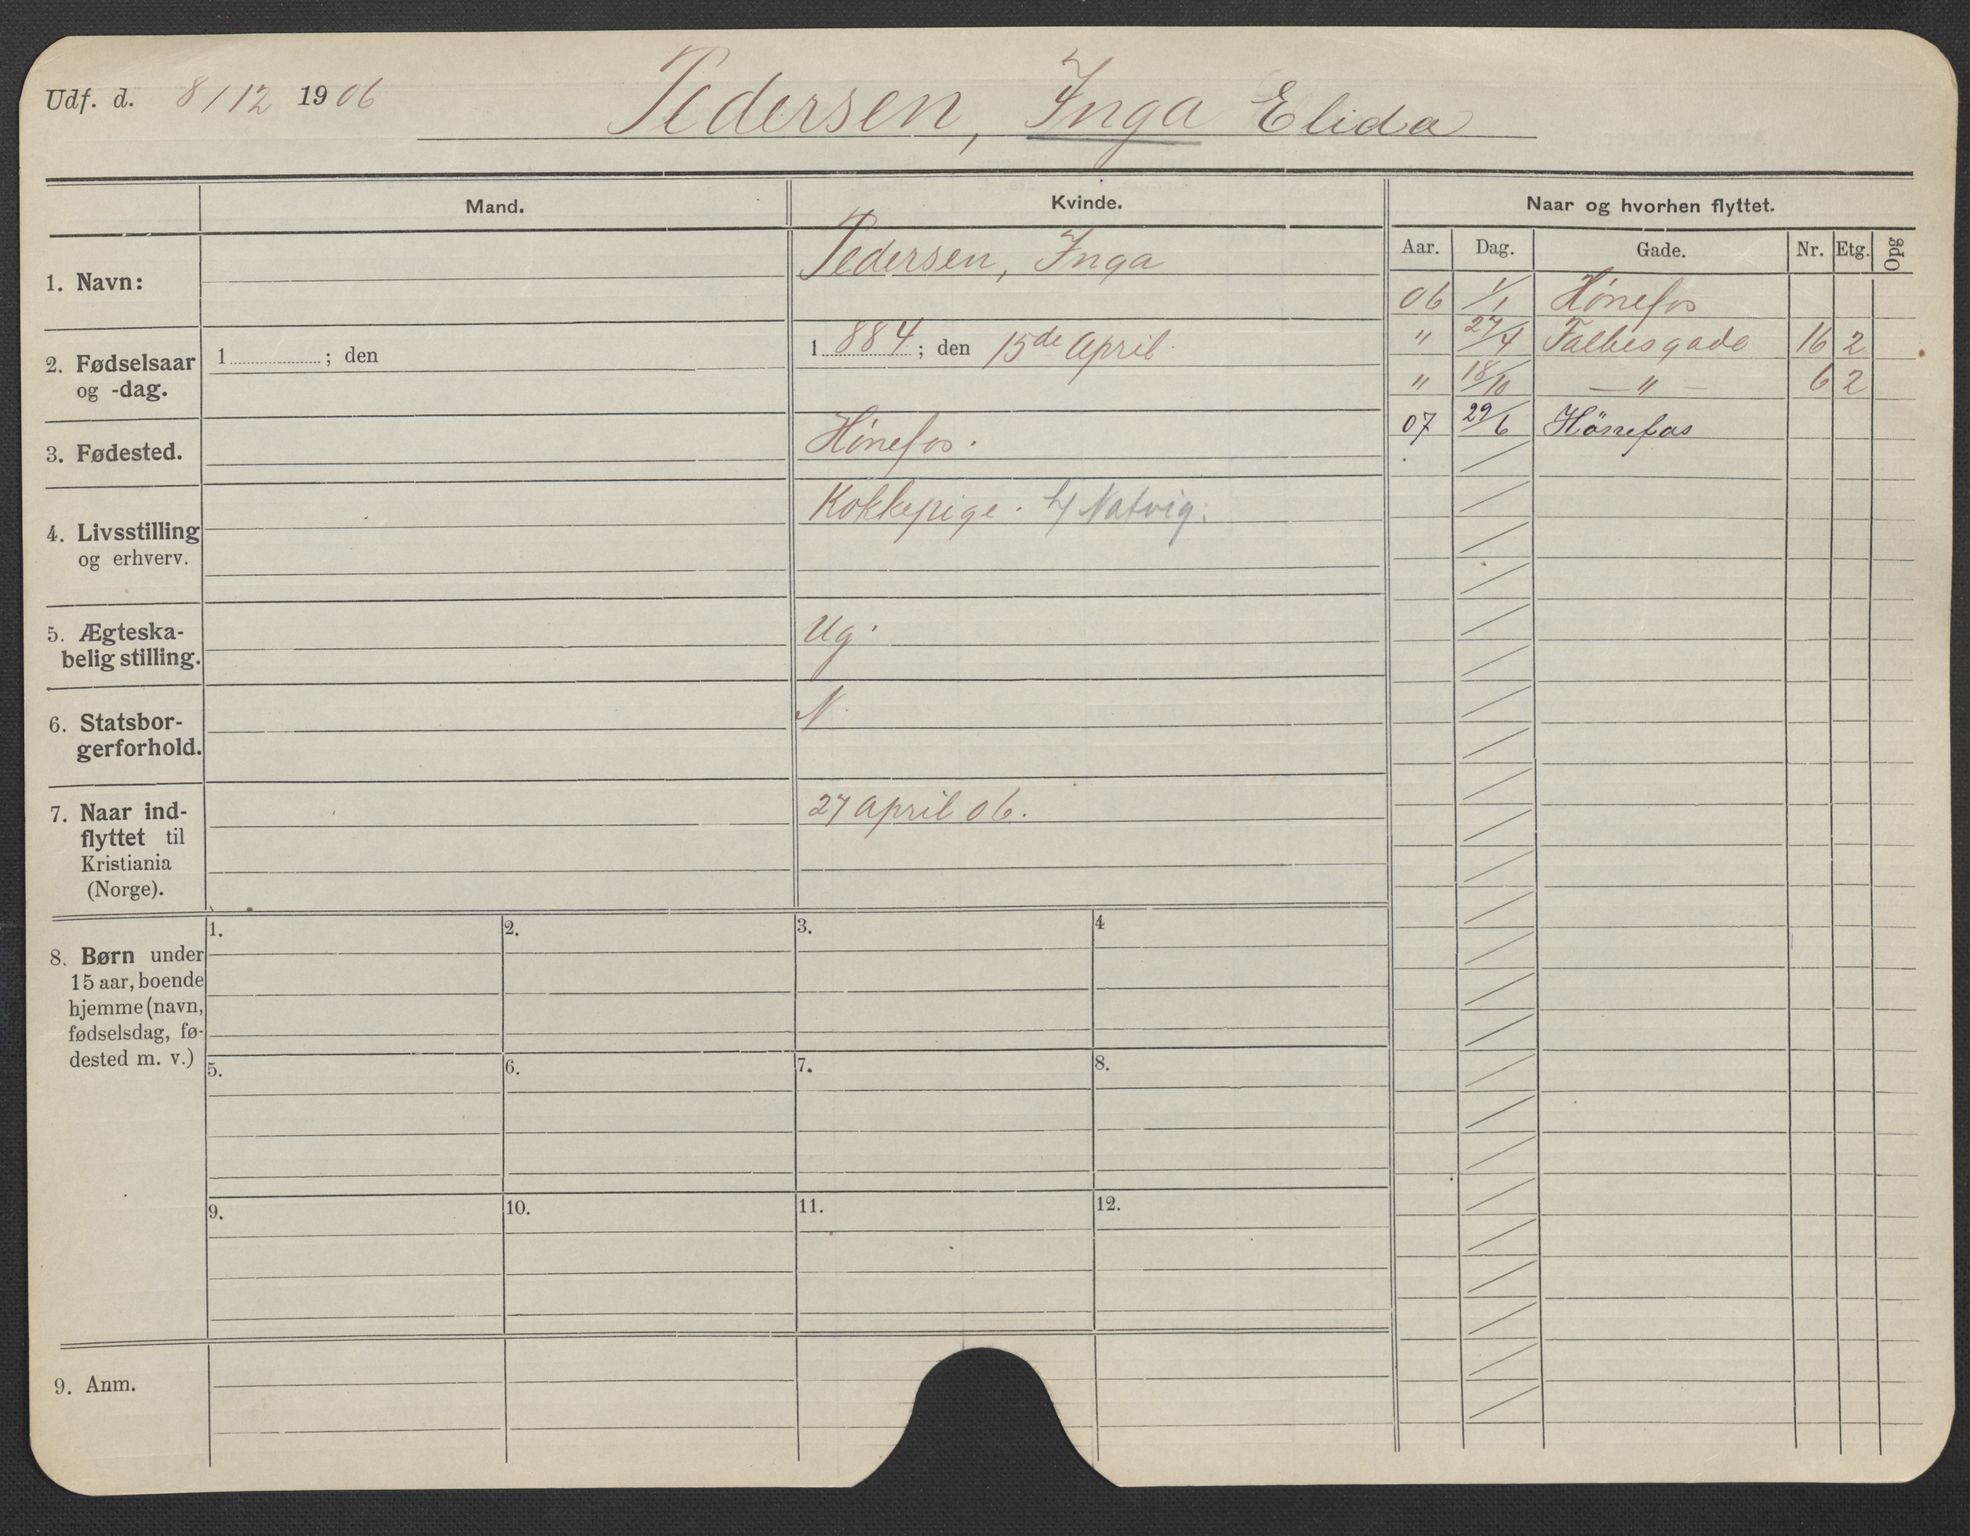 Udf. d. 8/12 1906
Pedersen, Inga Elida
Mand.
Kvinde.
Naar og hvorhen flyttet.
Aar. Dag. Gade. Nr. Etg. Opg
1. Navn:
Pedersen, Inga
06 1/1 Hönefos
" 27/4 Falbesgade 16 2
" 18/10 — " — 6 2
07 29/6 Hönefos
2. Fødselsaar
og -dag.
1 ; den
1 884 ; den 15de April
3. Fødested.
Hönefos.
4. Livsstilling
og erhverv.
Kokkepige. h/ Natvig.
5. Ægteska-
belig stilling.
Ug.
6. Statsbor-
gerforhold.
N.
7. Naar ind-
flyttet til
Kristiania
(Norge).
27 April 06.
8. Børn under
15 aar, boende
hjemme (navn,
fødselsdag, fø-
dested m. v.)
1. 2. 3. 4
5. 6. 7. 8.
9. 10. 11. 12.
9. Anm.